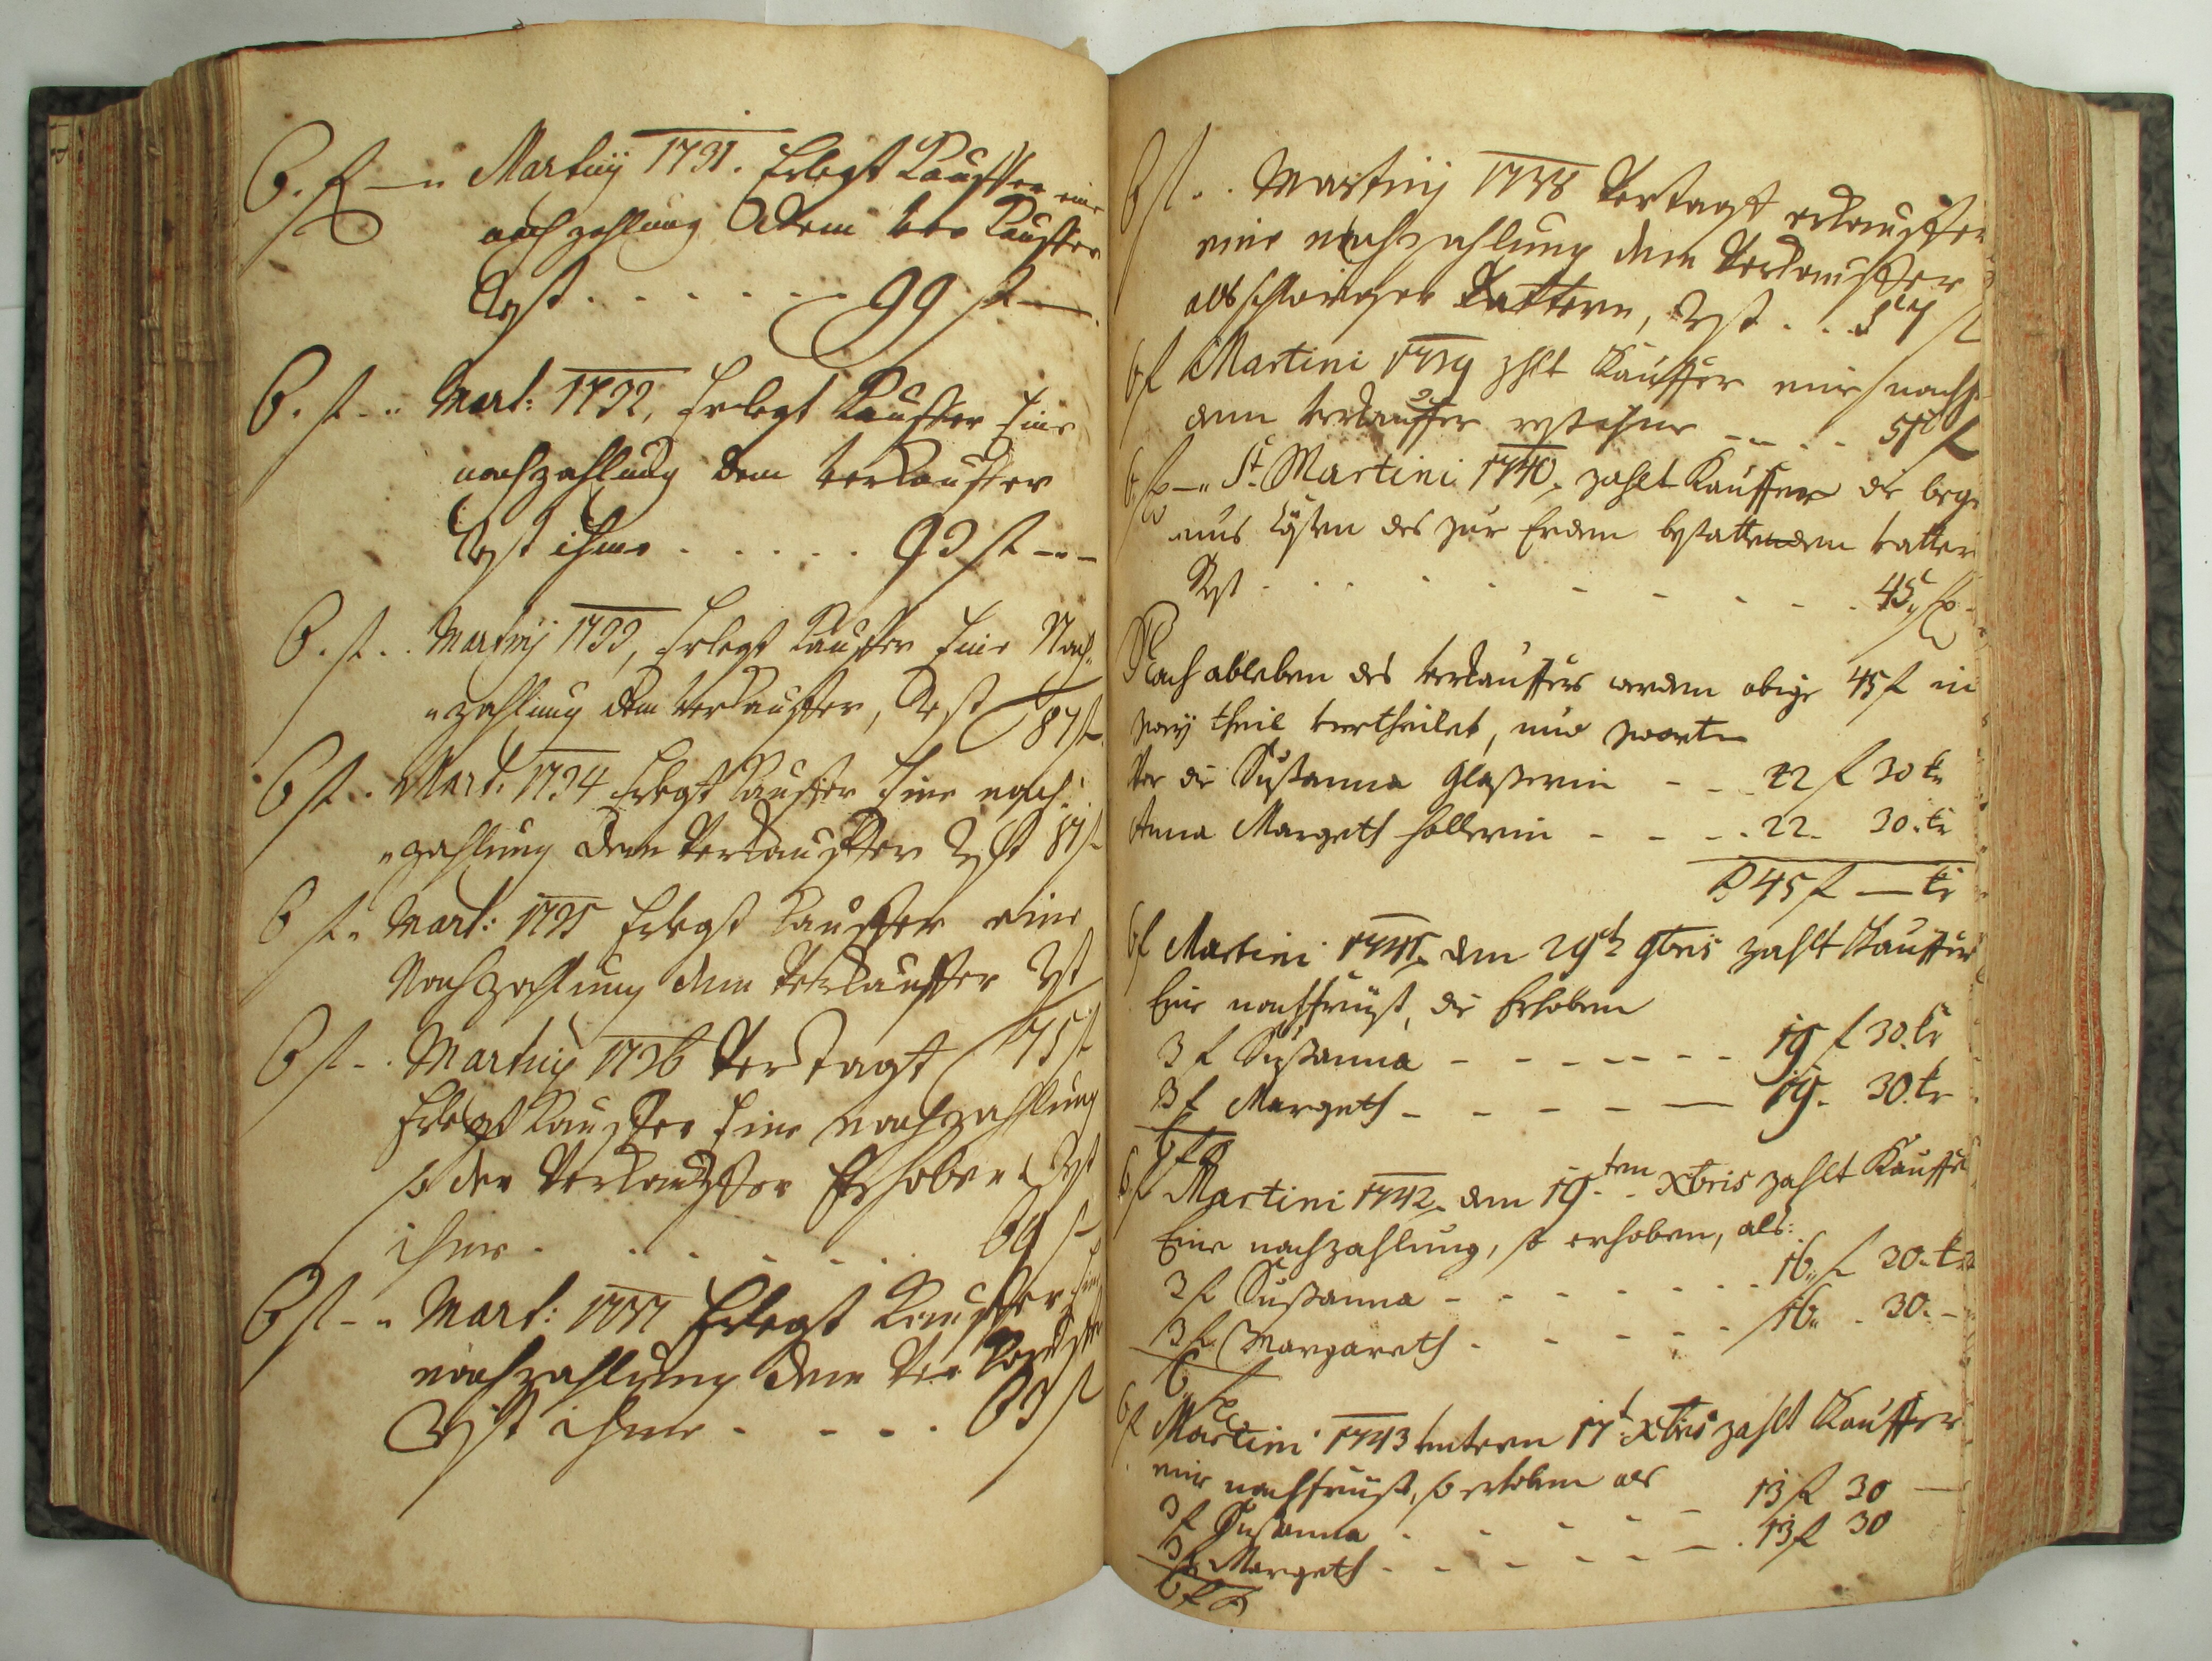 6. f — " Martiny 1731. Erlegt Kauffer eine
nachzahlung dem ver Kauffer
Rest . . . . . . . 99 f —
6. f. - " Mart: 1732, Erlegt Kauffer Eine
nachzahlung dem verkauffer
Rest ihme . . . . . 93 f — " —
6. f. . . Martiny 1733, Erlegt Kauffer Eine Nach„
„zahlung dem verkauffer, Rest 87 f
6 f . . Mart: 1734 Erlegt Kauffer Eine nach„
„zahlung dem Verkauffer Rest 81 f
6 f " Mart: 1735 Erlegt Kauffer eine
Nachzahlung dem Verkauffer Rest
75 f
6 f - . Martiny 1736 Vertagt
Erlegt Kauffer Eine nachzahlung
so der Verkauffer Erhoben Rest
ihme . . . . . . . 69 f
6 f - " Mart: 1737 Erlegt Kauffer Eine
nachzahlung dem Ver Kauffer
Rest ihme . . . . 63 f
6 f . . Martiny 1738 Vertagt erkauffer
eine nachzahlung dem Verkauffer
als schwiger Vattern, Rest . . . 57 f
6 f Martini 1739 zhlt Kauffer eine nachz
dem verkauffer restihme — — . . 51 f
6 f — " St. Martini 1740, zahlt Kauffer die begr
nus Kösten des zur Erden bestattendem vatter
Rest . . . . . . . . . . 45 " f .
Nach ableben des verkauffers werden obige 45 f in
zwey theil vertheilet, und zwar
Vor die Susanna Glaßerin - - - 22 f 30 kr
Anna Margeth Hollerin - - - - 22 - 30. kr
45 f — kr
6 f Martini 1741, den 29t 9bris zahlt Kauffer
Eine nachfrüst, die Erhoben
3 f Susanna - - - - - - - 19 f 30. kr
3 f Margeth - - - - - — 19 - 30. kr
6 f
6 f Martini 1742, den 19ten Xbris zahlt Kauffer
Eine nachzahlung, so erhoben, als:
3 f Susanna - - - - - - - 16 " f 30. kr
3 f. Margareth . - - - - - 16 " . 30. —
6 " f
6 f Martini 1743 untern 17t Xbris zahlt Kauffer
eine nachfrüst, so erhoben als
3 f Susanna . - - - - — 13 f 30 —
3 f Margeth - - - - - - — . 13 f 30
6 f